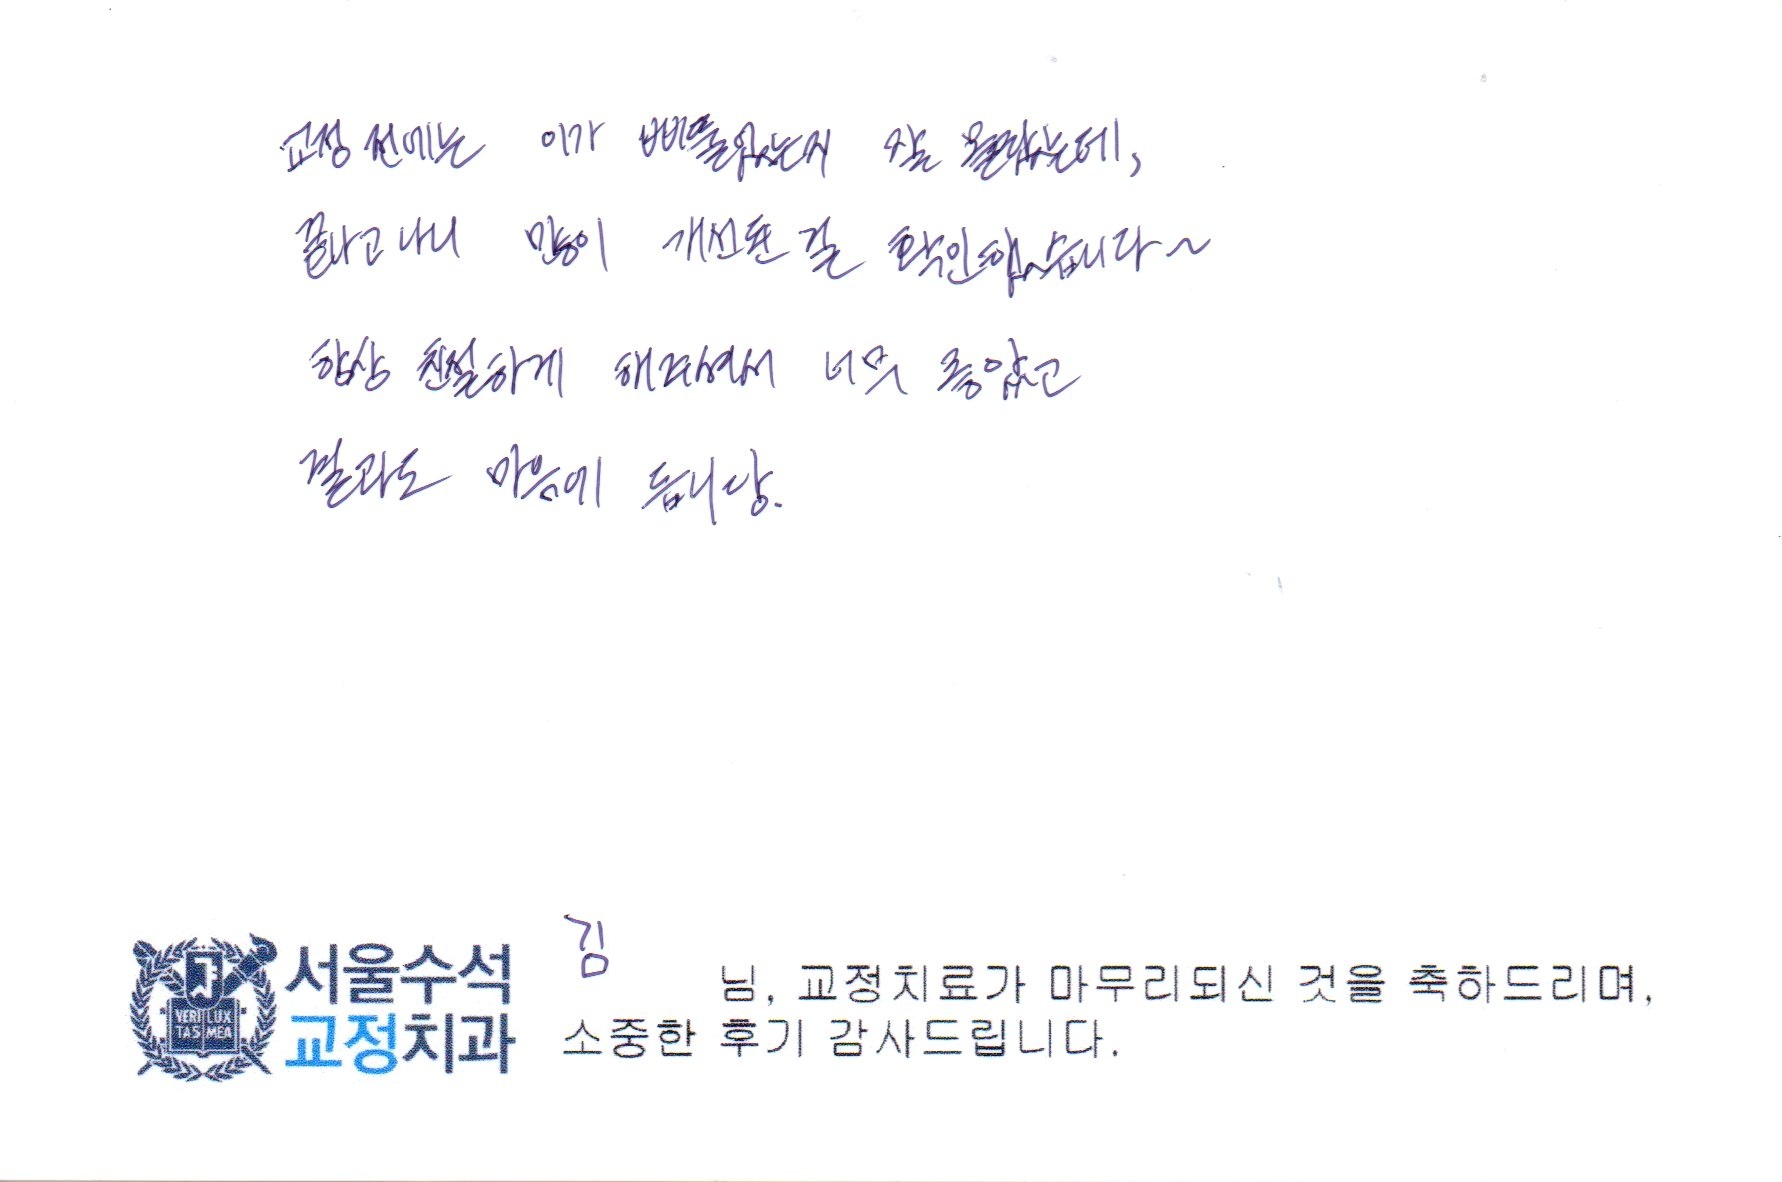 교정 전에는 이가 삐뚤었는지 잘 몰랐는데,
끝나고 나니 많이 개선된 걸 확인했습니다~
항상 친절하게 해주셔서 너무 좋았고
결과도 마음에 듭니당.
서울수석
교정치과
VERI LUX
TAS MEA
김 님, 교정치료가 마무리되신 것을 축하드리며,
소중한 후기 감사드립니다.